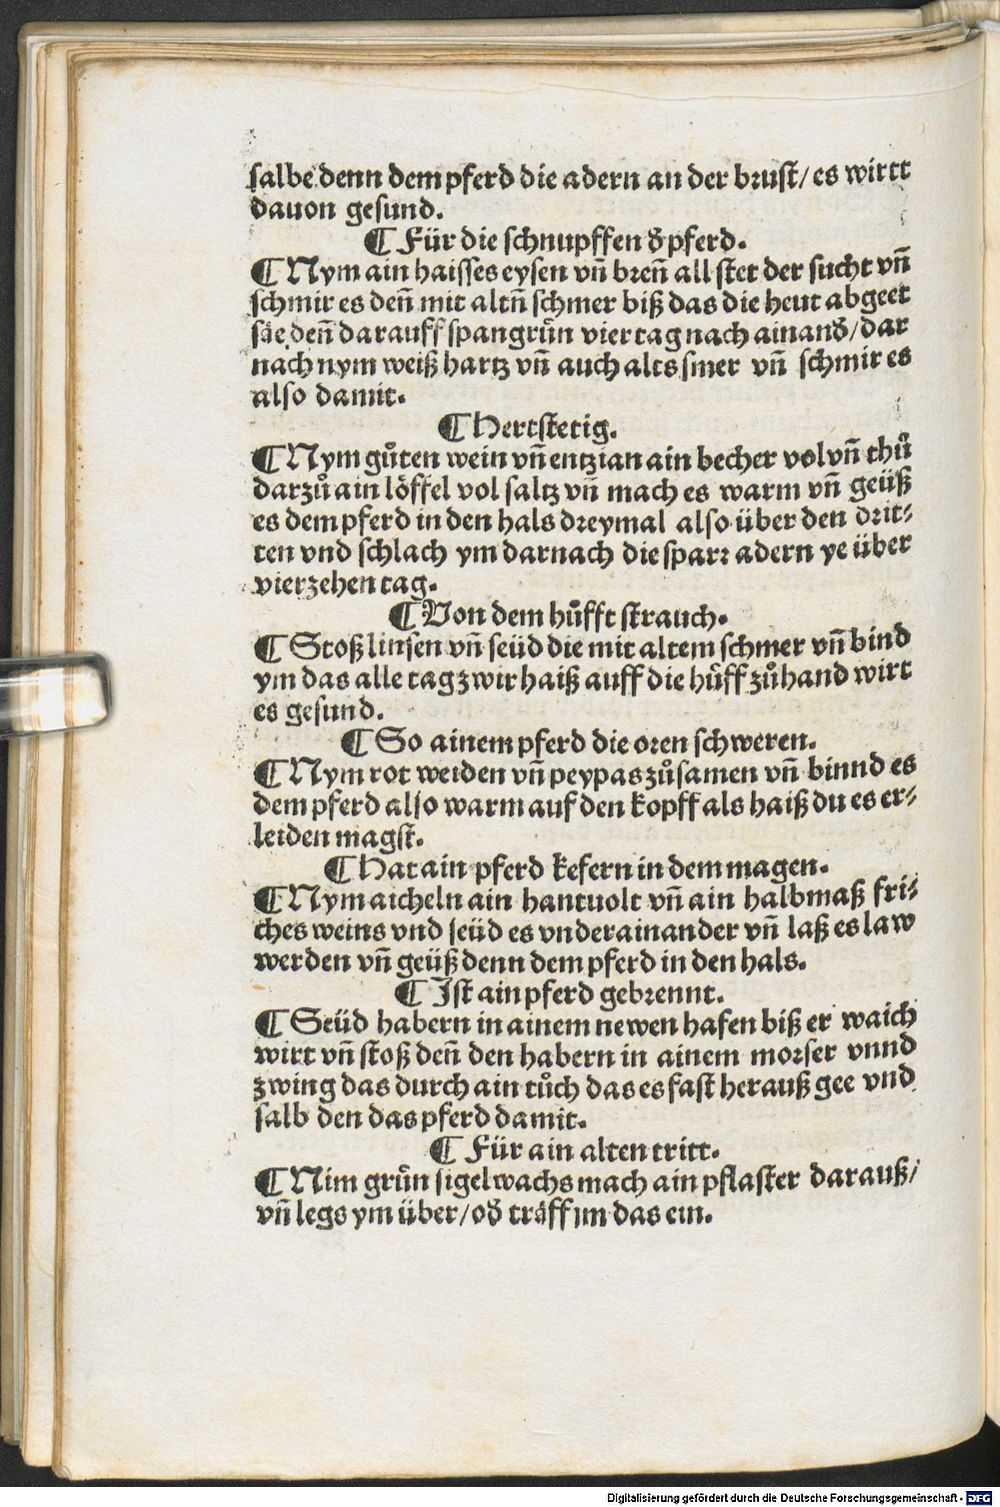 salbe denn dem pferd die adern an der brust/ es wirtt
dauon gesund.
¶ Für die schnupffen d̕ pferd.
¶ Nym ain haisses eysen vn̄ bren̄ all stet der sucht vn̄
schmir es den̄ mit altn̄ schmer biß das die heut abgeet
säe den̄ darauff spangruͤn vier tag nach ainand̕/ dar
nach nym weiß hartz vn̄ auch alts smer vn̄ schmir es
also damit.
¶ Hertstetig.
¶ Nym guͦten wein vn̄ entzian ain becher vol vn̄ thuͦ
darzuͦ ain loͤffel vol saltz vn̄ mach es warm vn̄ geüß
es dem pferd in den hals dreymal also über den drit⸗
ten vnd schlach ym darnach die sparr adern ye über
vierzehen tag.
¶ Von dem huͦfft strauch.
¶ Stoß linsen vn̄ seüd die mit altem schmer vn̄ bind
ym das alle tag zwir haiß auff die huͤff zuͦhand wirt
es gesund.
¶ So ainem pferd die oren schweren.
¶ Nym rot weiden vn̄ peypas zuͦsamen vn̄ binnd es
dem pferd also warm auf den kopff als haiß du es er⸗
leiden magst.
¶ Hat ain pferd kefern in dem magen.
¶ Nym aicheln ain hantuolt vn̄ ain halbmaß fri⸗
ches weins vnd seüd es vnderainander vn̄ laß es law
werden vn̄ geüß denn dem pferd in den hals.
¶ Ist ain pferd gebrennt.
¶ Seüd habern in ainem newen hafen biß er waich
wirt vn̄ stoß den̄ den habern in ainem morser vnnd
zwing das durch ain tuͦch das es fast herauß gee vnd
salb den das pferd damit.
¶ Für ain alten tritt.
¶ Nim gruͤn sigelwachs mach ain pflaster darauß/
vn̄ legs ym über/ od̕ träff im das ein.
Digitalisierung gefördert durch die Deutsche Forschungsgemeinschaft - DFG